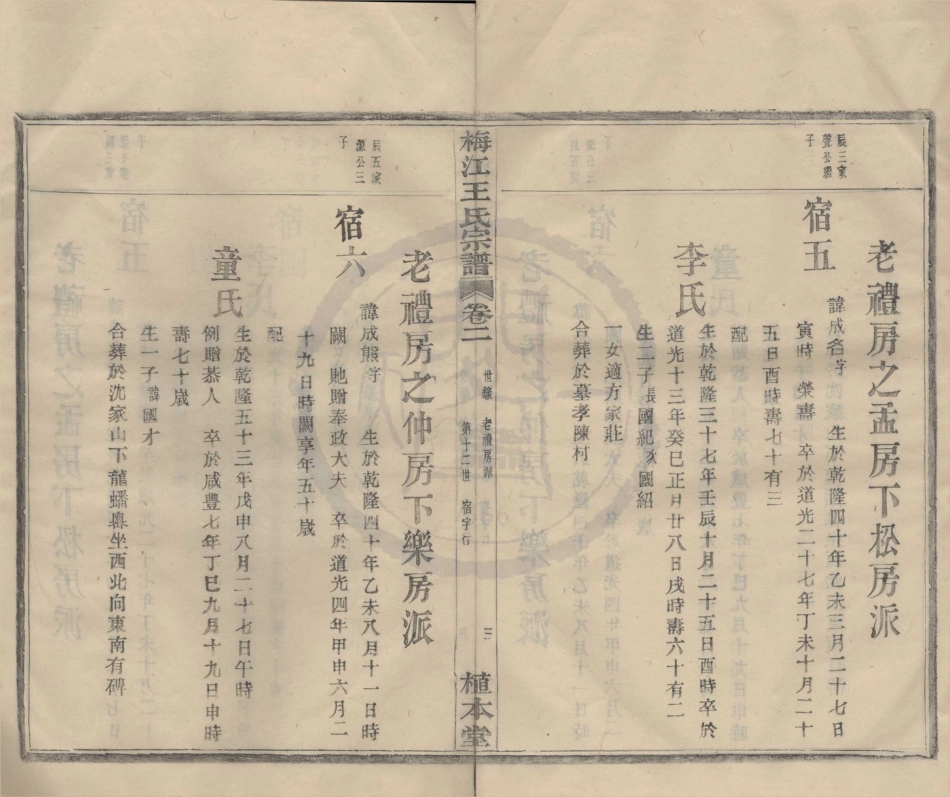 老禮房之孟房下松房派
辰三家
聲公繼
子
宿五
諱成名字 生於乾隆四十年乙未三月二十七日
寅時 榮壽 卒於道光二十七年丁未十月二十
五日酉時壽七十有三
配
李氏
生於乾隆三十七年壬辰十月二十五日酉時卒於
道光十三年癸巳正月廿八日戌時壽六十有二
生二子長國紀次國紹
女適方家莊
合葬於墓孝陳村
梅江王氏宗譜
卷二
世錄 老禮房派
第十二世 宿字行
三
植本堂
老禮房之仲房下樂房派
辰五家
瀠公三
子
宿六
諱成熊字 生於乾隆四十年乙未八月十一日時
闕 貤贈奉政大夫 卒於道光四年甲申六月二
十九日時闕享年五十歲
配
童氏
生於乾隆五十三年戊申八月二十七日午時
例贈恭人 卒於咸豐七年丁巳九月十九日申時
壽七十歲
生一子諱國才
合葬於沈家山下龍蟠裊坐西北向東南有碑